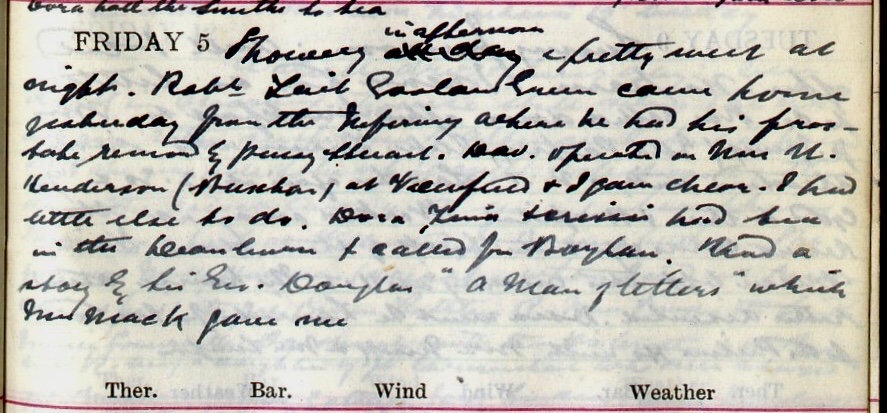 Dora had the Smiths to tea
FRIDAY 5 Showery in afternoon all day & pretty wet at
night. Robt. Laid Green came home
yesterday from the Infirmary where he had his pros-
tate removed by Henry Stuart. Dav. operated on Mrs N.
Henderson (Buxhar) at Viewfield & I gave chlor. I had
little else to do. Dora, & had tea
in the & called for Boylan. Read a
story by Sir Geo. Douglas "a Man of letters" which
Mrs Mack gave me
Ther. Bar. Wind Weather